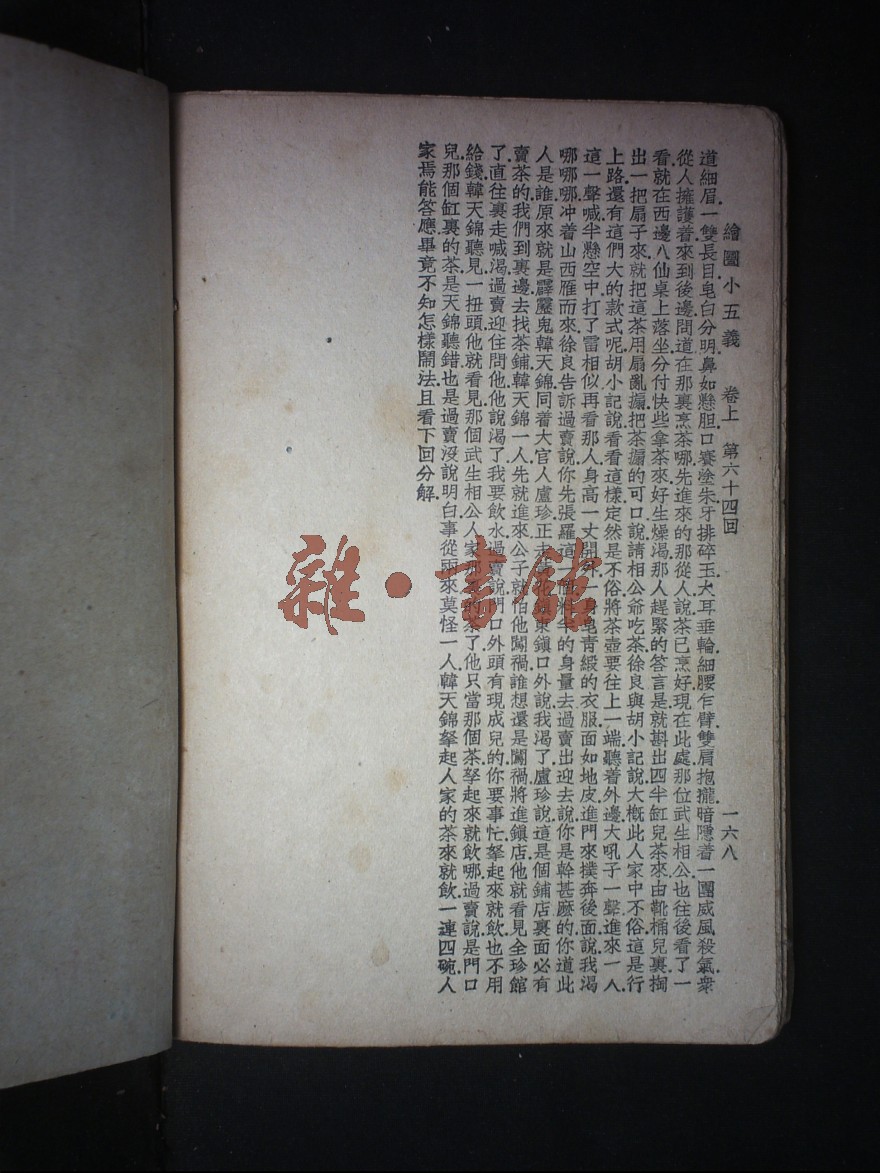 繪圖小五義　卷上　第六十四回　一六八
道細眉一雙長目皂白分明鼻如懸胆口賽塗朱牙排碎玉大耳垂輪細腰乍臂雙肩抱攏暗隱着一團威風殺氣衆
從人擁護着來到後邊問道在那裏烹茶哪先進來的那從人說茶已烹好現在此處那位武生相公也往後看了一
看就在西邊八仙桌上落坐分付快些拿茶來好生燥渴那人趕緊的答言是就斟出四半缸兒茶來由靴桶兒裏掏
出一把扇子來就把這茶用扇亂搧把茶搧的可口說請相公爺吃茶徐良與胡小記說大概此人家中不俗這是行
上路還有這們大的款式呢胡小記說看看這樣定然是不俗將茶壺要往上一端聽着外邊大吼子一聲進來一人
這一聲喊半懸空中打了雷相似再看那人身高一丈開外一身皂青緞的衣服面如地皮進門來撲奔後面說我渴
哪哪哪冲着山西雁而來徐良告訴過賣說你先張羅這一個料半的身量去過賣出迎去說你是幹甚麽的你道此
人是誰原來就是霹靂鬼韓天錦同着大官人盧珍正走東鎮口外說我渴了盧珍說這是個鋪店裏面必有
賣茶的我們到裏邊去找茶鋪韓天錦一人先就進來公子就怕他闖禍誰想還是闖禍將進鎮店他就看見全珍館
了直往裏走喊渴過賣迎住問他他說渴了我要飲水過賣說門口外頭有現成兒的你要事忙拏起來就飲也不用
給錢韓天錦聽見一扭頭他就看見那個武生相公人家那的茶了他只當那個茶拏起來就飲哪過賣說是門口
兒那個缸裏的茶是天錦聽錯也是過賣沒說明白事從頭來莫怪一人韓天錦拏起人家的茶來就飲一連四碗人
家焉能答應畢竟不知怎樣鬧法且看下回分解
雜·書館